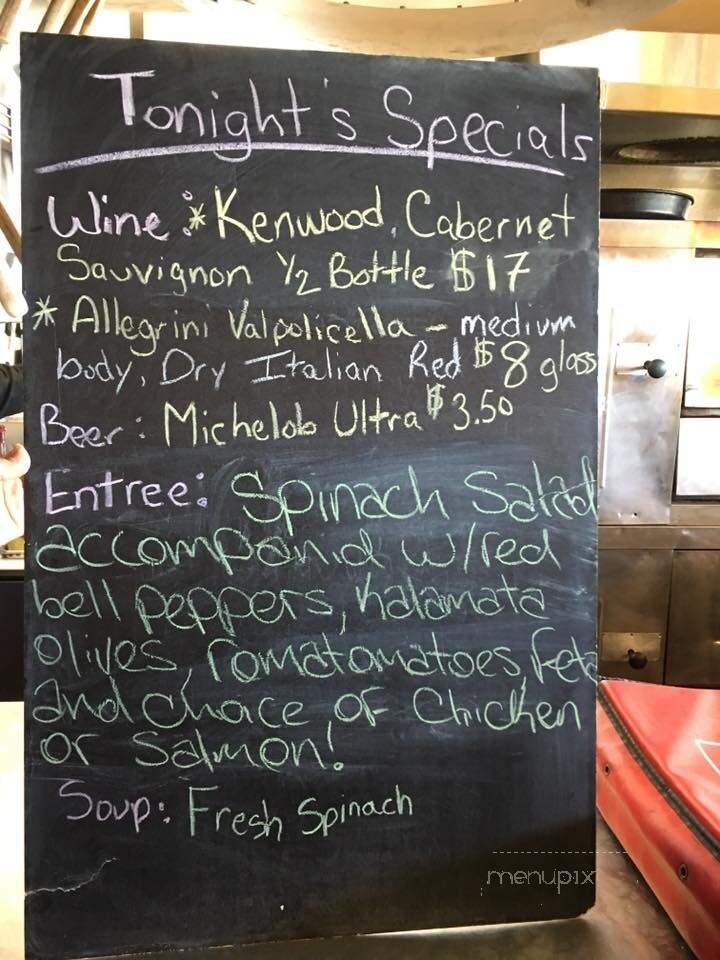 Tonight's Specials
Wine: *Kenwood, Cabernet
Sauvignon 1/2 Bottle $17
* Allegrini Valpolicella - medium
body, Dry Italian Red $8 glass
Beer: Michelob Ultra $3.50
Entree: Spinach Salad
accompanid w/red
bell peppers, kalamata
olives, romatomatoes, feta
and choice of Chicken
or Salmon!
Soup: Fresh Spinach
menupix